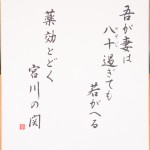 吾が妻は
八十過ぎても
若がへる
薬効とどく
宮川の関